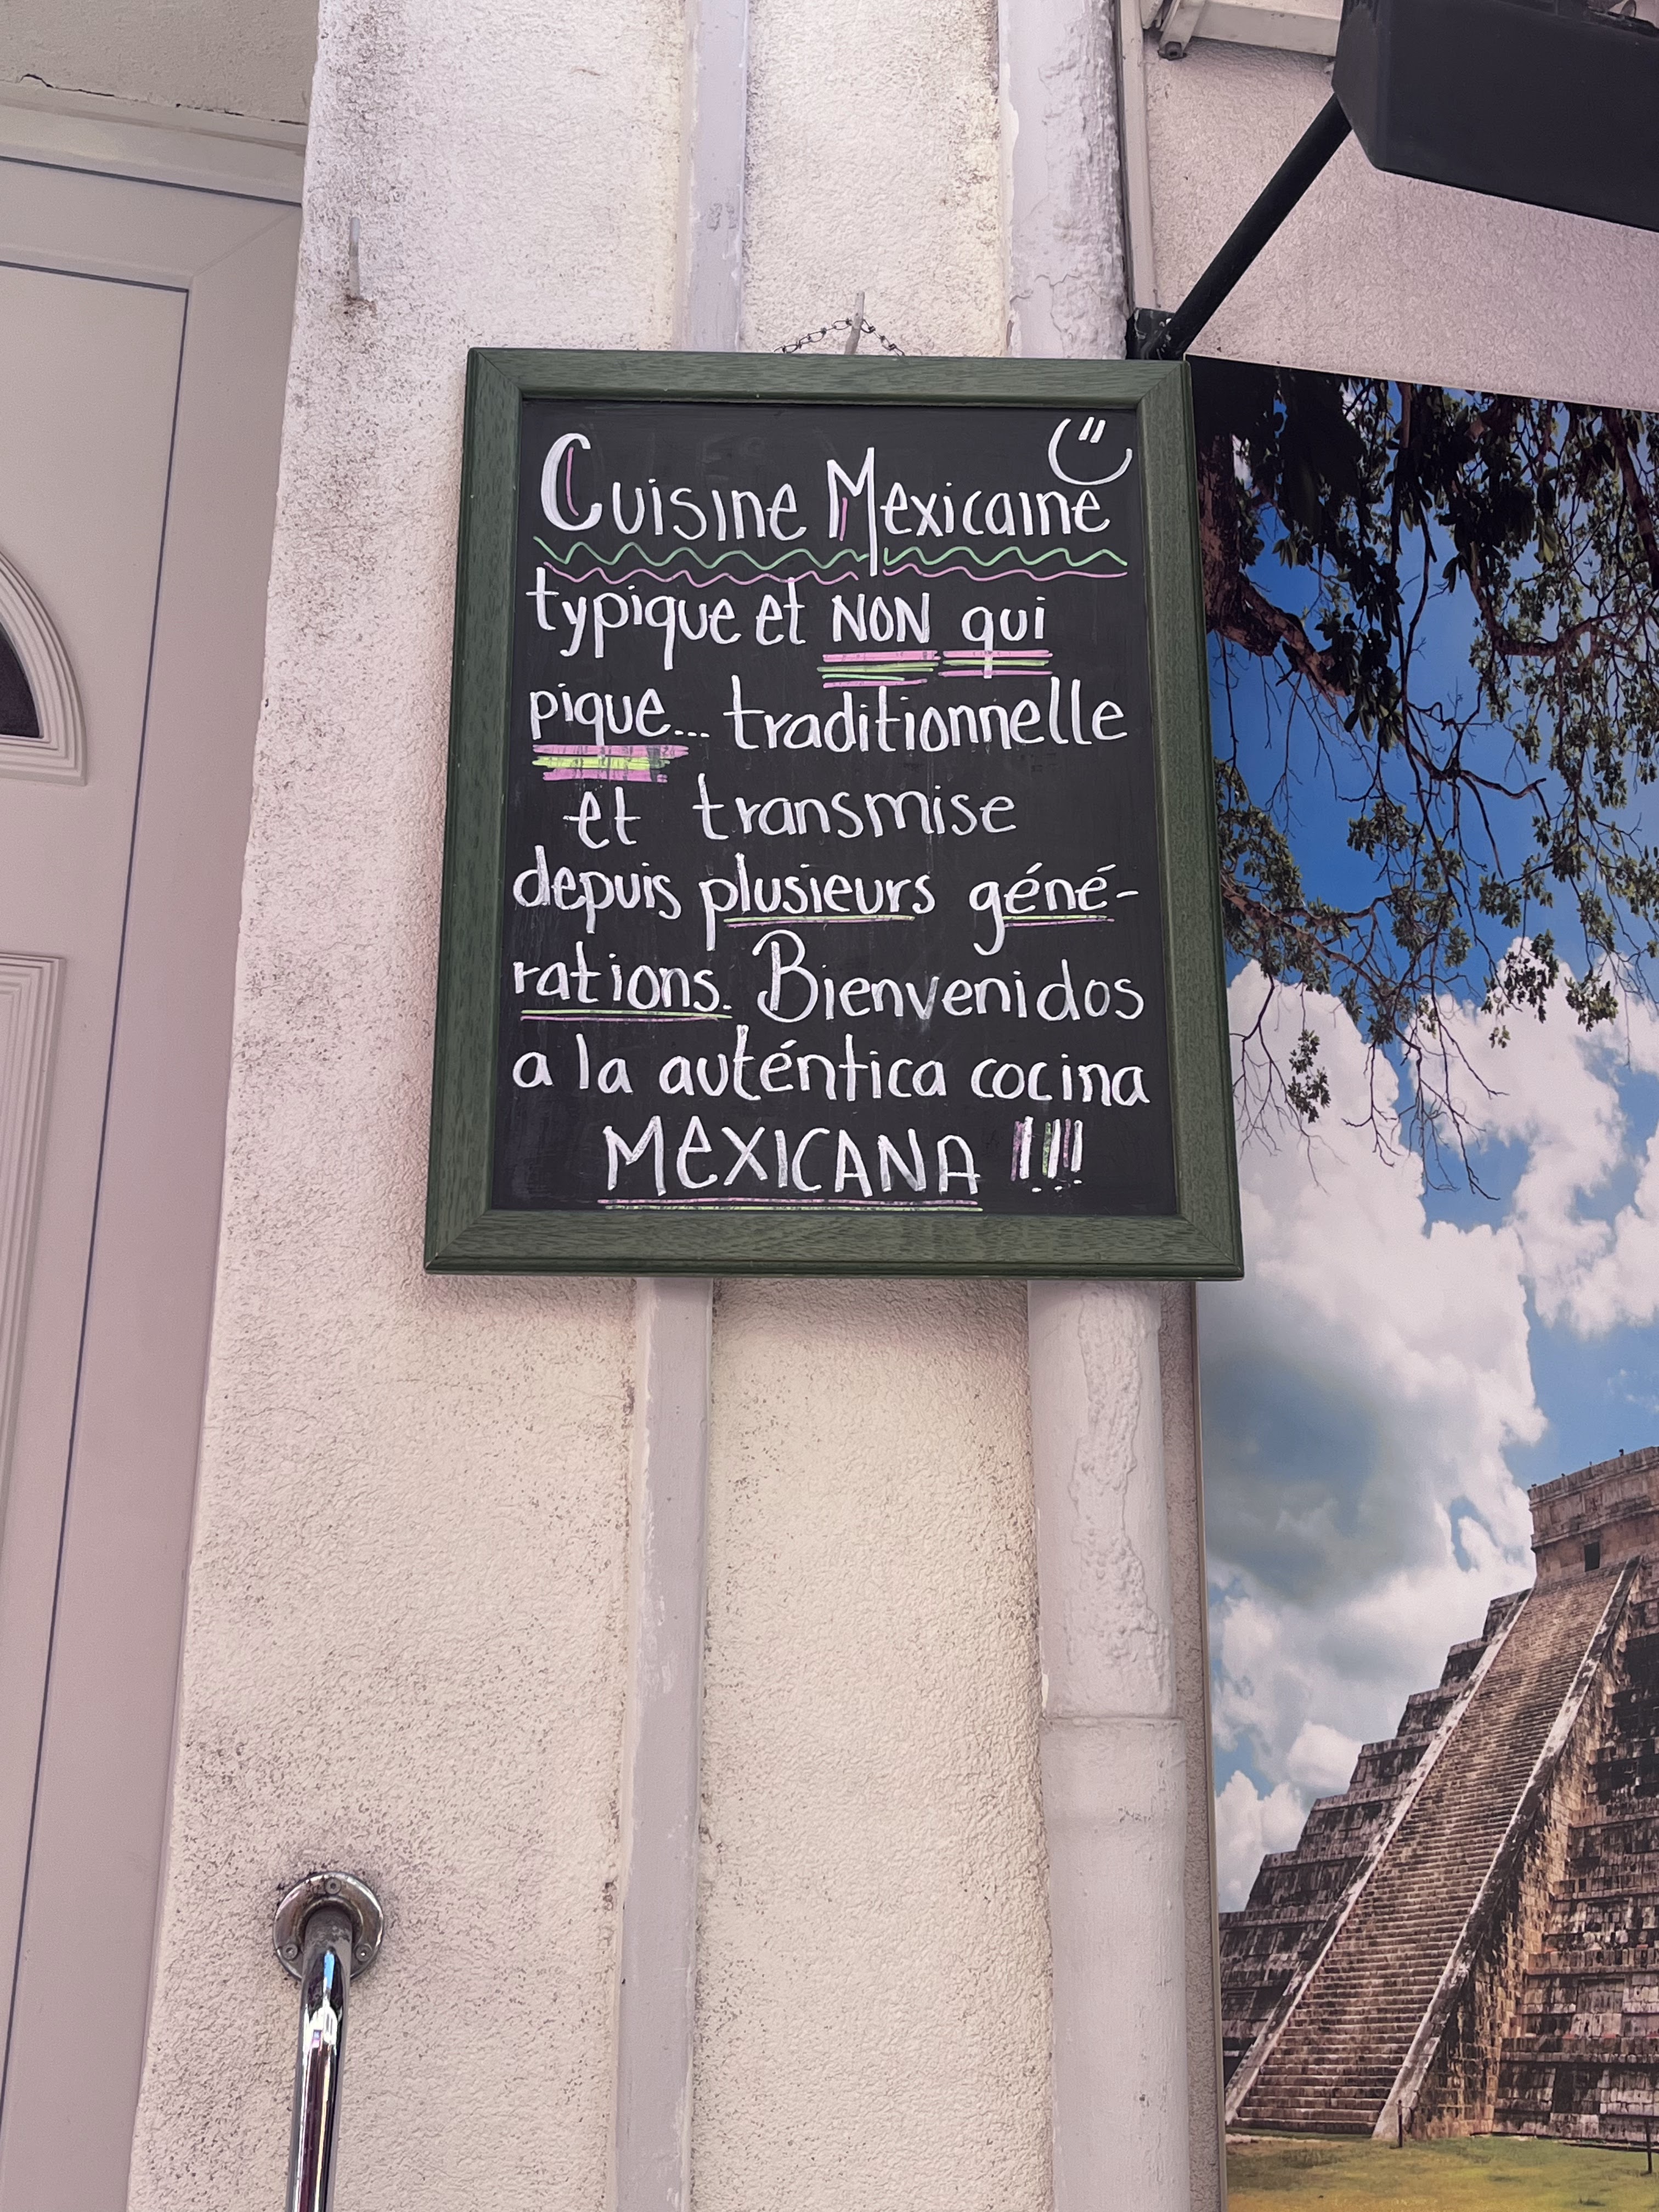 Cuisine Mexicaine
typique et NON qui
pique... traditionnelle
et transmise
depuis plusieurs géné-
rations. Bienvenidos
a la auténtica cocina
MEXICANA !!!